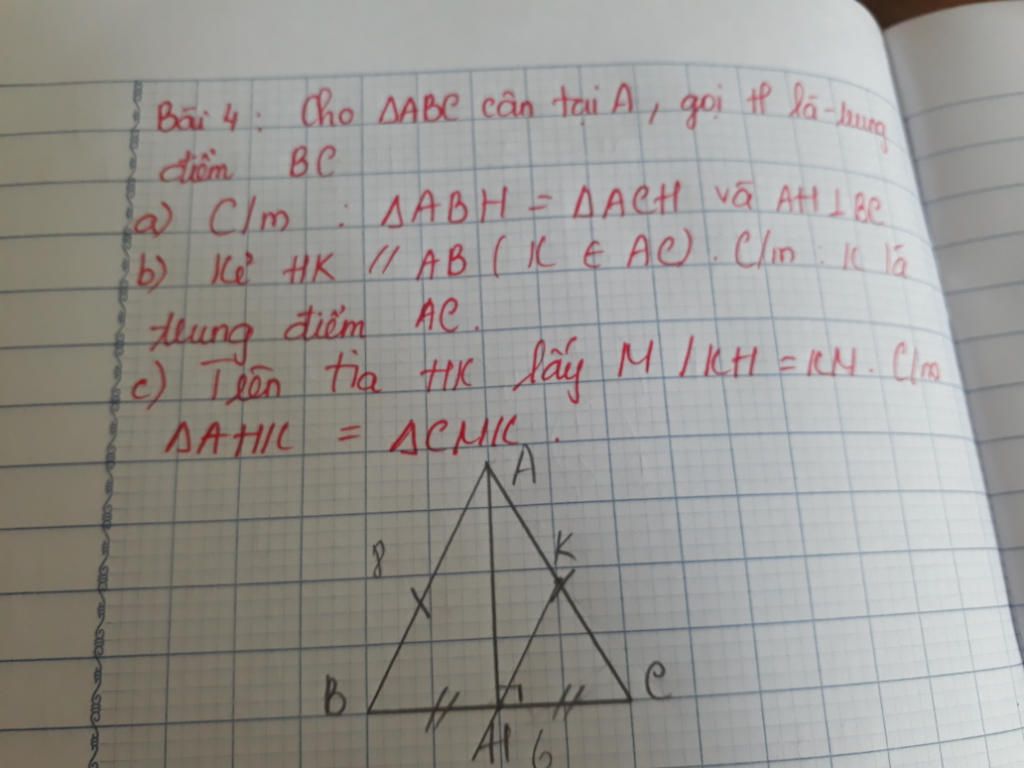 Bài 4: Cho ΔABC cân tại A, gọi H là trung
điểm BC
a) C/m : ΔABH = ΔACH và AH⊥BC
b) Kẻ HK // AB ( K ∈ AC). C/m : K là
trung điểm AC.
c) Trên tia HK lấy M / KH = KM. C/m
ΔAHK = ΔCMK.
A
8
K
B
C
H 6